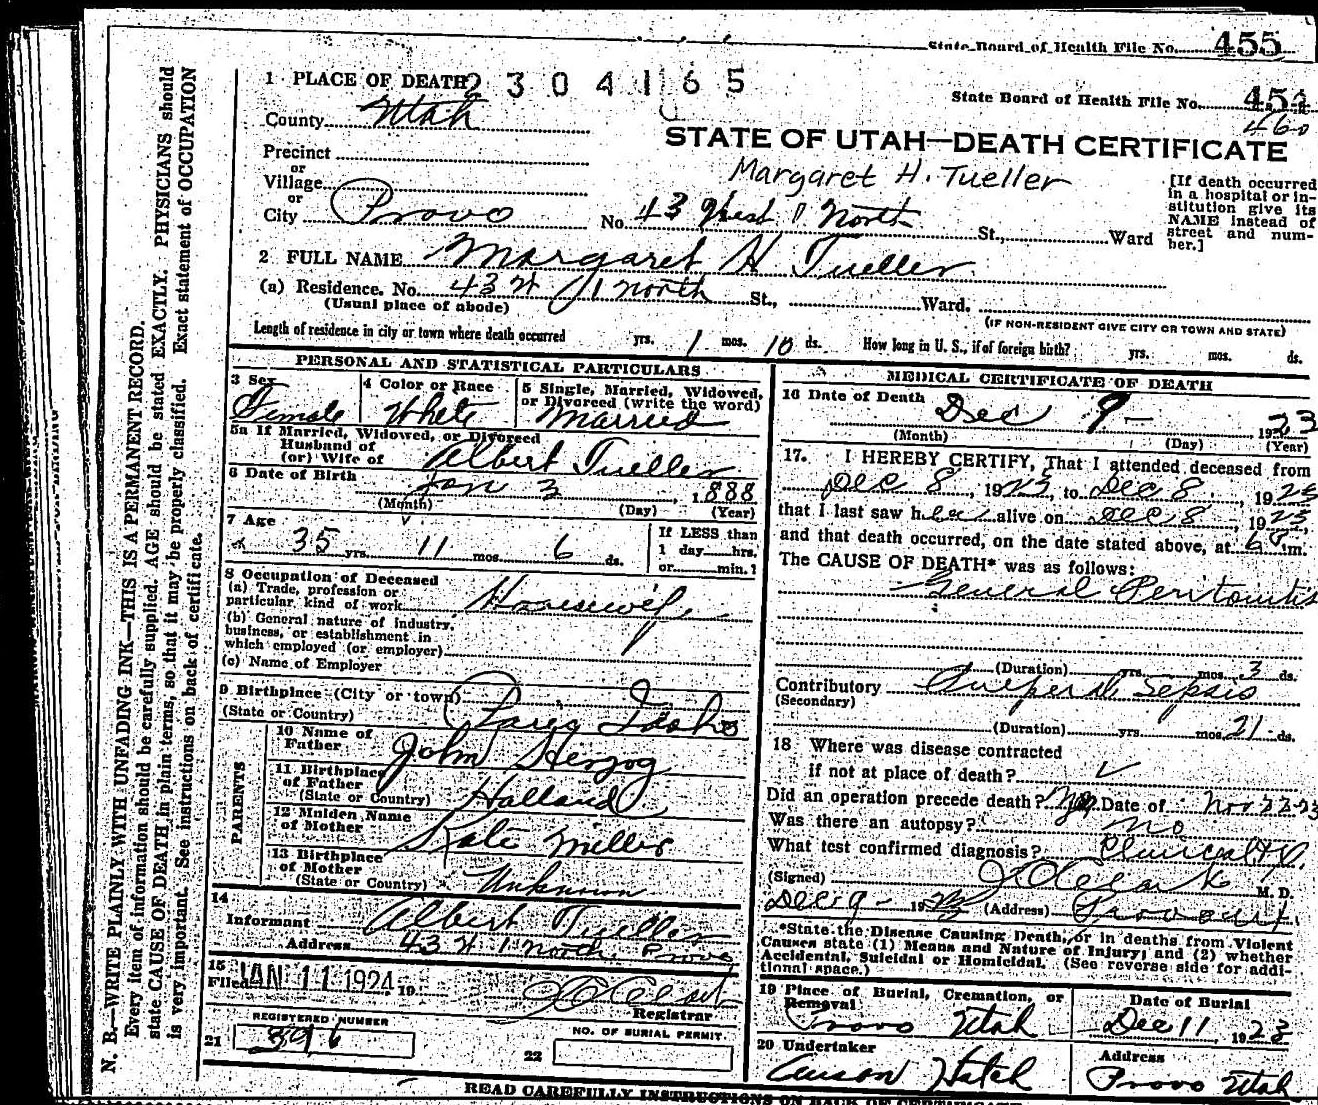 State Board of Health File No. 455
1 PLACE OF DEATH 2304165
State Board of Health File No. 454
460
County Utah
STATE OF UTAH—DEATH CERTIFICATE
Precinct
or
Village
or
City Provo
Margaret H. Tueller
No. 43 West 1 North St., Ward
[If death occurred
in a hospital or in-
stitution give its
NAME instead of
street and num-
ber.]
2 FULL NAME Margaret H Tueller
(a) Residence. No. 43 W 1 North St., Ward.
(Usual place of abode)
(IF NON-RESIDENT GIVE CITY OR TOWN AND STATE)
Length of residence in city or town where death occurred yrs. 1 mos. 10 ds. How long in U. S., if of foreign birth? yrs. mos. ds.
PERSONAL AND STATISTICAL PARTICULARS
3 Sex
Female
4 Color or Race
White
5 Single, Married, Widowed,
or Divorced (write the word)
Married
5a If Married, Widowed, or Divorced
Husband of
(or) Wife of Albert Tueller
6 Date of Birth Jan 3, 1888
(Month) (Day) (Year)
7 Age
35 yrs. 11 mos. 6 ds.
If LESS than
1 day hrs.
or min.?
8 Occupation of Deceased
(a) Trade, profession or
particular, kind of work Housewife
(b) General nature of Industry,
business, or establishment in
which employed (or employer)
(c) Name of Employer
9 Birthplace (City or town)
(State or Country) Paris Idaho
PARENTS
10 Name of
Father John Herzog
11 Birthplace
of Father
(State or Country) Holland
12 Maiden Name
of Mother Kate Miller
13 Birthplace
of Mother
(State or Country) Unknown
14
Informant Albert Tueller
Address 43 W 1 North Provo
15
Filed JAN 11 1924 19
Registrar
REGISTERED NUMBER
21 396
NO. OF BURIAL PERMIT
22
MEDICAL CERTIFICATE OF DEATH
16 Date of Death Dec 9 — 1923
(Month) (Day) (Year)
17. I HEREBY CERTIFY, That I attended deceased from
Dec 8, 1923, to Dec 8, 1923
that I last saw her alive on Dec 8, 1923,
and that death occurred, on the date stated above, at 6 m.
The CAUSE OF DEATH* was as follows:
General Peritonitis
(Duration) yrs. mos. 3 ds.
Contributory Puerperal Sepsis
(Secondary)
(Duration) yrs. mos. 21 ds.
18 Where was disease contracted
if not at place of death?
Did an operation precede death? Yes Date of Nov 22-23
Was there an autopsy? no
What test confirmed diagnosis? Clinical
(Signed) J O Clark M. D.
Dec 9 - 1923 (Address) Provo
*State the Disease Causing Death, or in deaths from Violent
Causes state (1) Means and Nature of Injury; and (2) whether
Accidental, Suicidal or Homicidal. (See reverse side for addi-
tional space.)
19 Place of Burial, Cremation, or
Removal
Provo Utah
Date of Burial
Dec 11 1923
20 Undertaker
Anson Hatch
Address
Provo Utah
READ CAREFULLY INSTRUCTIONS ON BACK OF CERTIFICATE
N. B.—WRITE PLAINLY WITH UNFADING INK—THIS IS A PERMANENT RECORD.
Every item of information should be carefully supplied. AGE should be stated EXACTLY. PHYSICIANS should
state CAUSE OF DEATH in plain terms, so that it may be properly classified. Exact statement of OCCUPATION
is very important. See instructions on back of certificate.